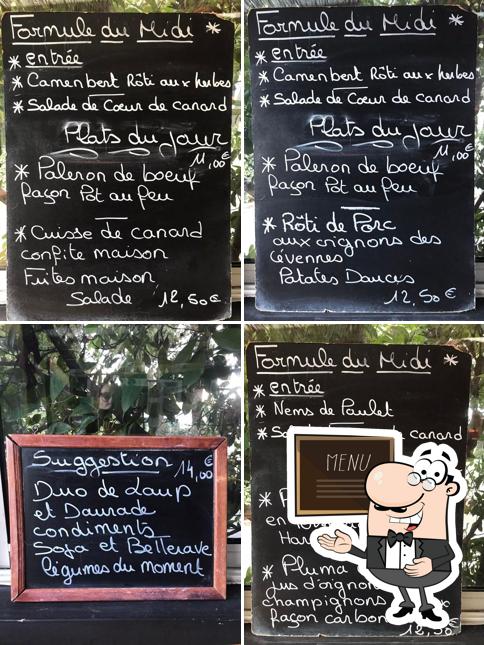 Formule du Midi *
* entrée
* Camenbert Rôti aux herbes
* Salade de Cœur de canard
Plats du jour
11,00€
* Paleron de boeuf
façon Pot au feu
* Cuisse de canard
confite maison
Frites maison
Salade 12,50€
Formule du Midi *
* entrée
* Camenbert Rôti aux herbes
* Salade de Cœur de canard
Plats du jour
11,00€
* Paleron de boeuf
façon Pot au feu
* Rôti de Porc
aux oignons des
cévennes
Patates Douces
12,50€
Suggestion 14,00€
Duo de Loup
et Daurade
condiments
Soja et Betterave
légumes du moment
Formule du Midi *
* entrée
* Nems de Poulet
* canard
MENU
* Pluma
jus d'oignon
champignons
façon carbon
12,50€